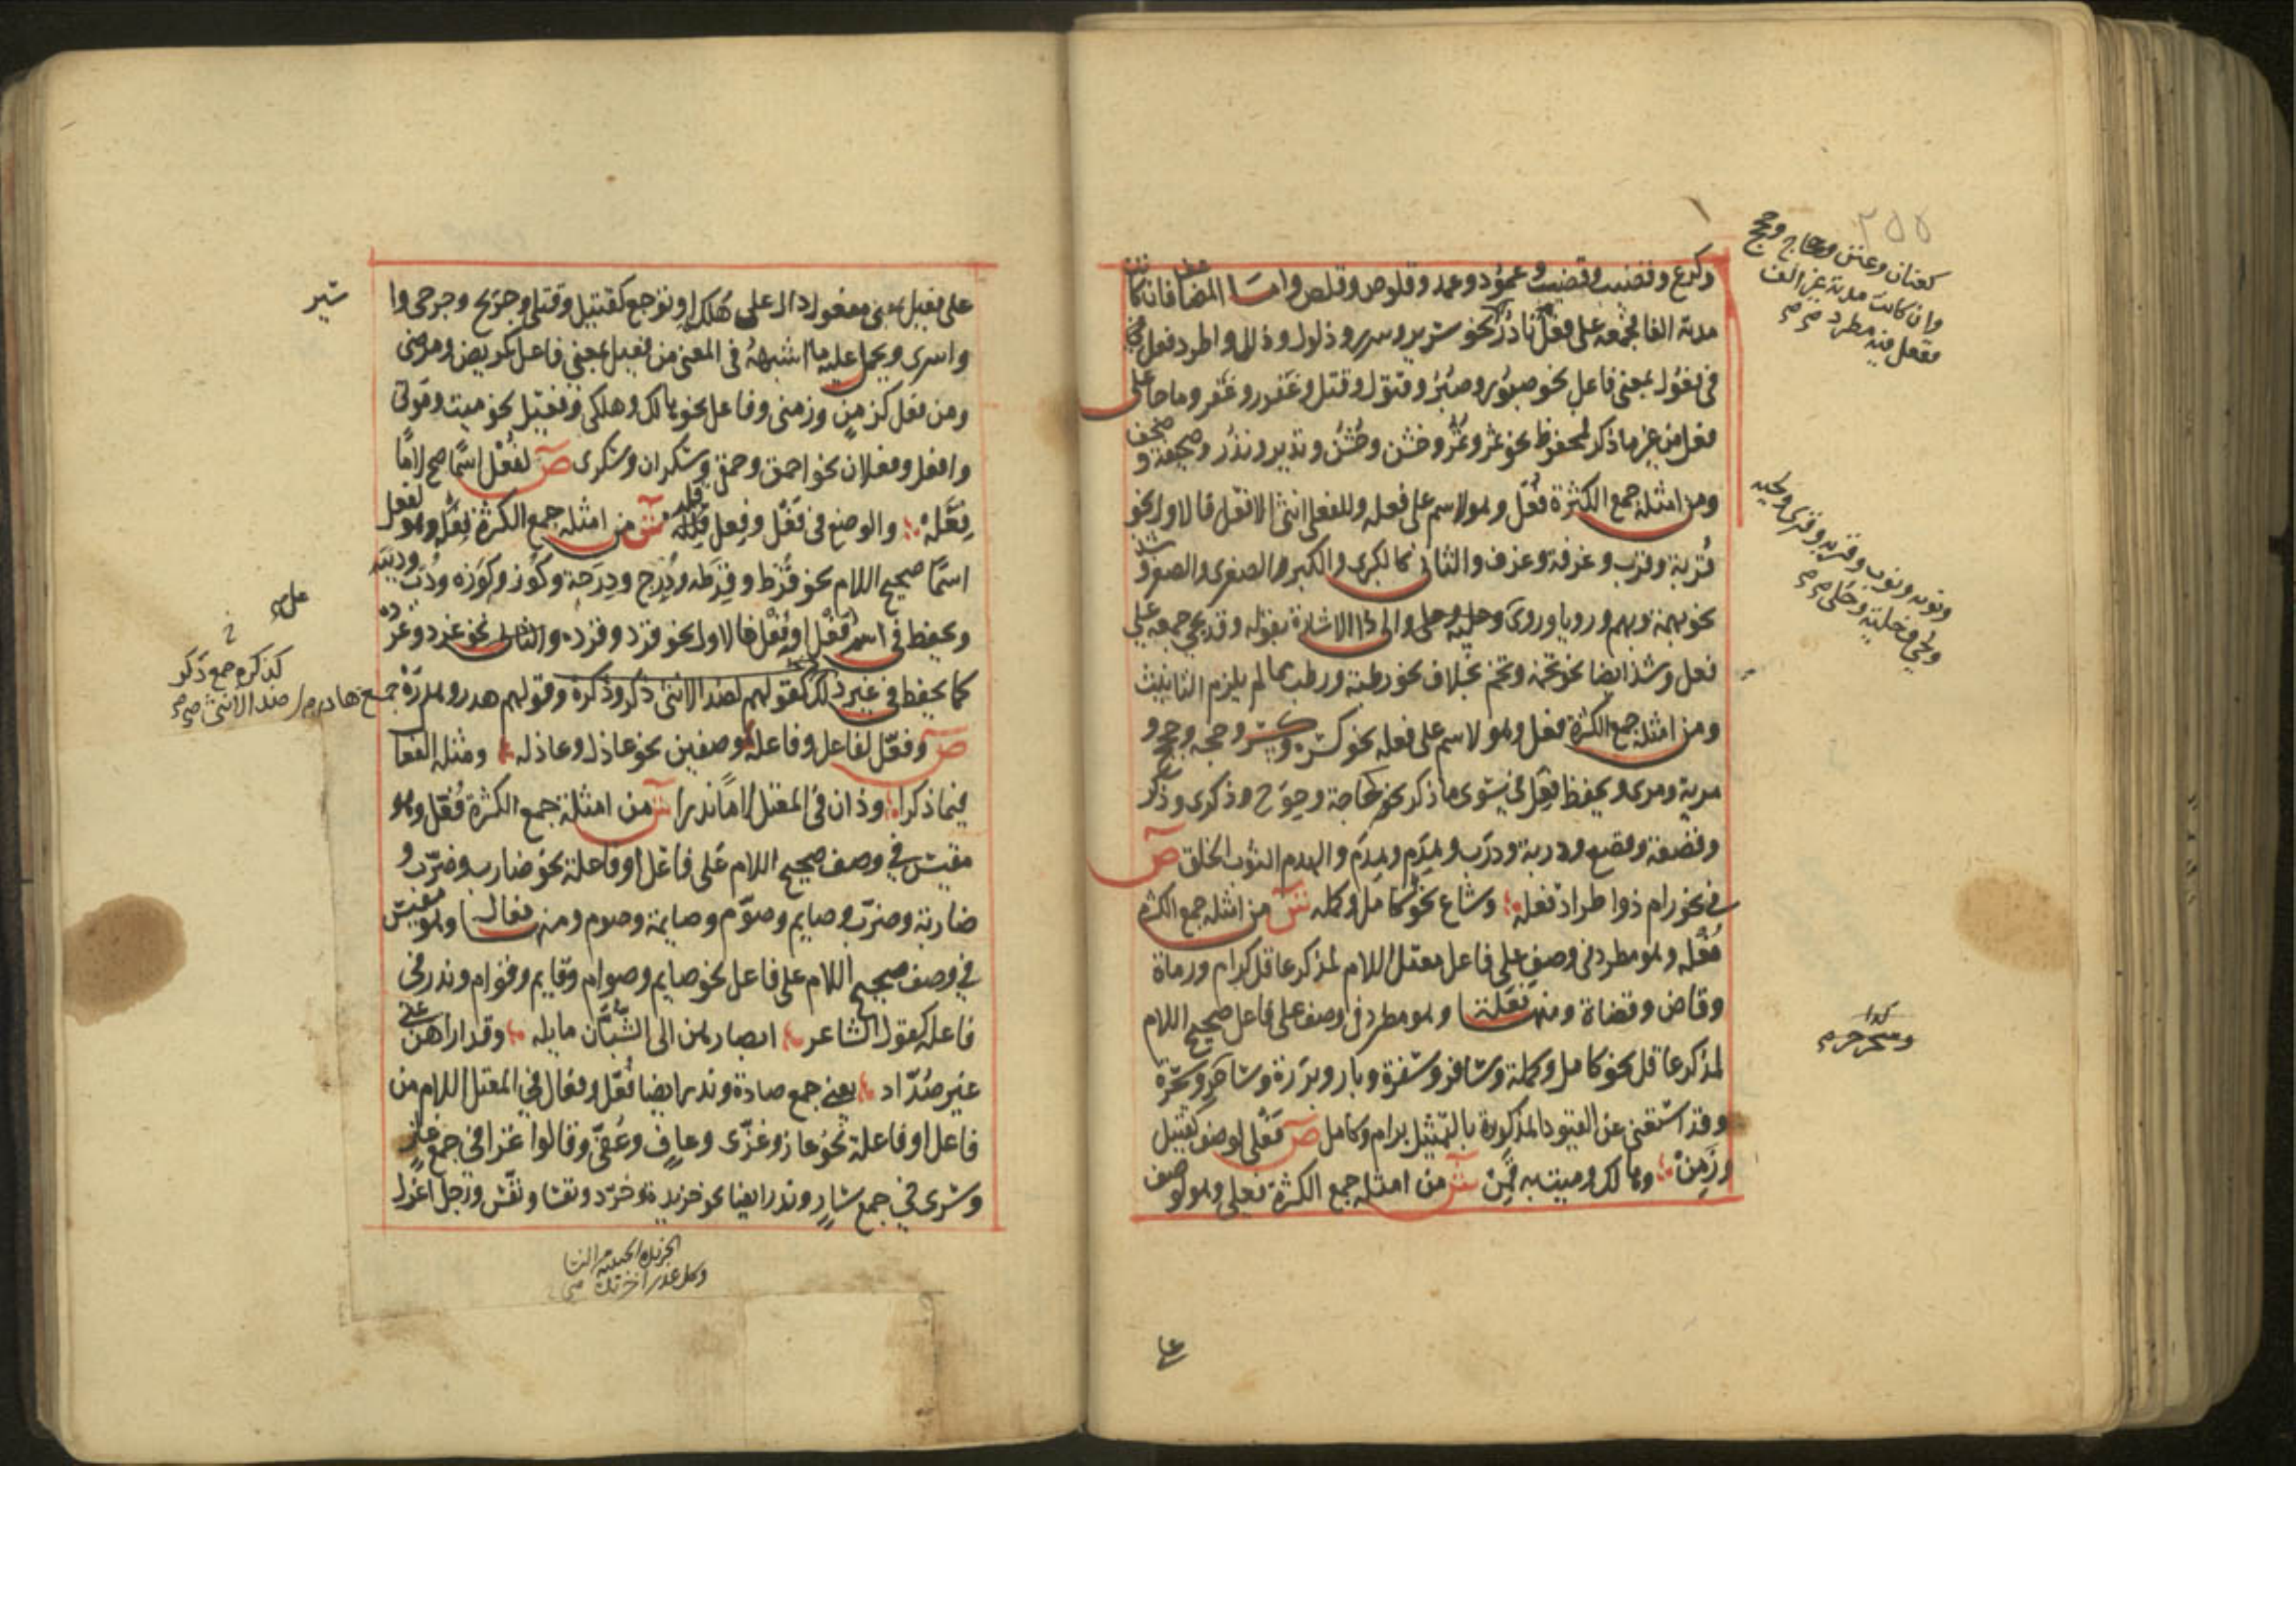 وكرع وقضيب وقضب وعمود وعمد وقلوص وقلص واما المضاف فان كانت
مدته الفا فجمعه على فعل نادر نحو سرير وسرر وذلول وذلل واطرد فعل
في فعول بمعنى فاعل نحو صبور وصبر وقتول وقتل وغفور وغفر وما جا على
فعل من غير ما ذكر فمحفوظ نحو نمر ونمر وخشن وخشن ونذير ونذر وصحيفة وصحف
ومن امثلة جمع الكثرة فعل وهو لاسم على فعله وللفعلى انثى الافعل فالاول نحو
قربة وقرب وغرفة وغرف والثاني كالكبرى والكبر والصغرى والصغر وشذ
نحو بهمة وبهم ورويا وروى وحلية وحلى والى هذا الاشارة بقوله وقد يجي جمعه على
فعل وشذ ايضا نحو تخمة وتخم بخلاف نحو رطبة ورطب مما لم يلزم التانيث
ومن امثلة جمع الكثرة فعل وهو لاسم على فعله نحو كسرة وكسر وحجة وحجج و
مرية ومرى ويحفظ فعل في سوى ما ذكر نحو حاجة وحوج وذكرى وذكر
وقصعة وقصع ودربة ودرب وهدم وهدم والهدم الثوب الخلق ص
في نحو رام ذو اطراد فعله وشاع نحو كامل وكمله ش من امثلة جمع الكثرة
فعله وهو مطرد في وصف على فاعل معتل اللام لمذكر عاقل كرام ورماة
وقاض وقضاة ومنها فعلة وهو مطرد في وصف على فاعل صحيح اللام
لمذكر عاقل نحو كامل وكملة وسافر وسفرة وبار وبررة وساحر وسحرة
وقد استغنى عن القيود المذكورة بالتمثيل برام وكامل ص فعلى لوصف كقتيل
وزمن وهالك وميت به قمن ش من امثلة جمع الكثرة فعلى وهو لوصف
على
٢٥٥
كعنان وعنن وحجاج وحجج
وان كانت مدته غير الف
ففعل فيه مطرد صح صح
ونوبه ونوب وقريه وقرى ولحيه
ولحى وحلية وحلى صح صح
كذا
على فعيل بمعنى مفعول دال على هلك او توجع كقتيل وقتلى وجريح وجرحى وا
واسرى ويحمل عليه ما اشبهه في المعنى من فعيل بمعنى فاعل كمريض ومرضى
ومن فعل كزمن وزمنى وفاعل نحو هالك وهلكى وفيعل نحو ميت وموتى
وافعل وفعلان نحو احمق وحمقى وسكران وسكرى ص لفعل اسما صح لاما
فعله والوضع في فعل وفعل قلله ش من امثلة جمع الكثرة فعله وهو لفعل
اسما صحيح اللام نحو قرط وقرطه ودرج ودرجة وكوز وكوزه ودب ودببه
ويحفظ في اسم فعل او فعل فالاول نحو قرد وقرده والثاني نحو غرد وغرده
كما يحفظ في غير ذلك كقولهم لضد الانثى ذكر وذكرة وقولهم هدر وهدرة
ص وفعل لفاعل وفاعله وصفين نحو عاذل وعاذله ومثله الفعال
فيما ذكرا وذان في المعتل لاما ندرا ش من امثلة جمع الكثرة فعل وهو
مقيس في وصف صحيح اللام على فاعل او فاعلة نحو ضارب وضرب و
ضاربة وضرب وصايم وصوم وصايمة وصوم ومنه فعال وهو مقيس
في وصف صحيح اللام على فاعل نحو صايم وصوام وقايم وقوام وندر في
فاعله كقول الشاعر ابصارهن الى الشبان مايله وقد اراهن عني
غير صداد يعني جمع صادة وندر ايضا فعل وفعال في المعتل اللام من
فاعل او فاعلة نحو غاز وغزى وعاف وعفى وقالوا غزا في جمع غاز
وسرى في جمع سار وندر ايضا نحو خريدة وخرد ونفسا ونفس ورجل اعزل
كذكره جمع ذكر
ضد الانثى صح صح
جمع هادر
الخريدة الحيية من النسا